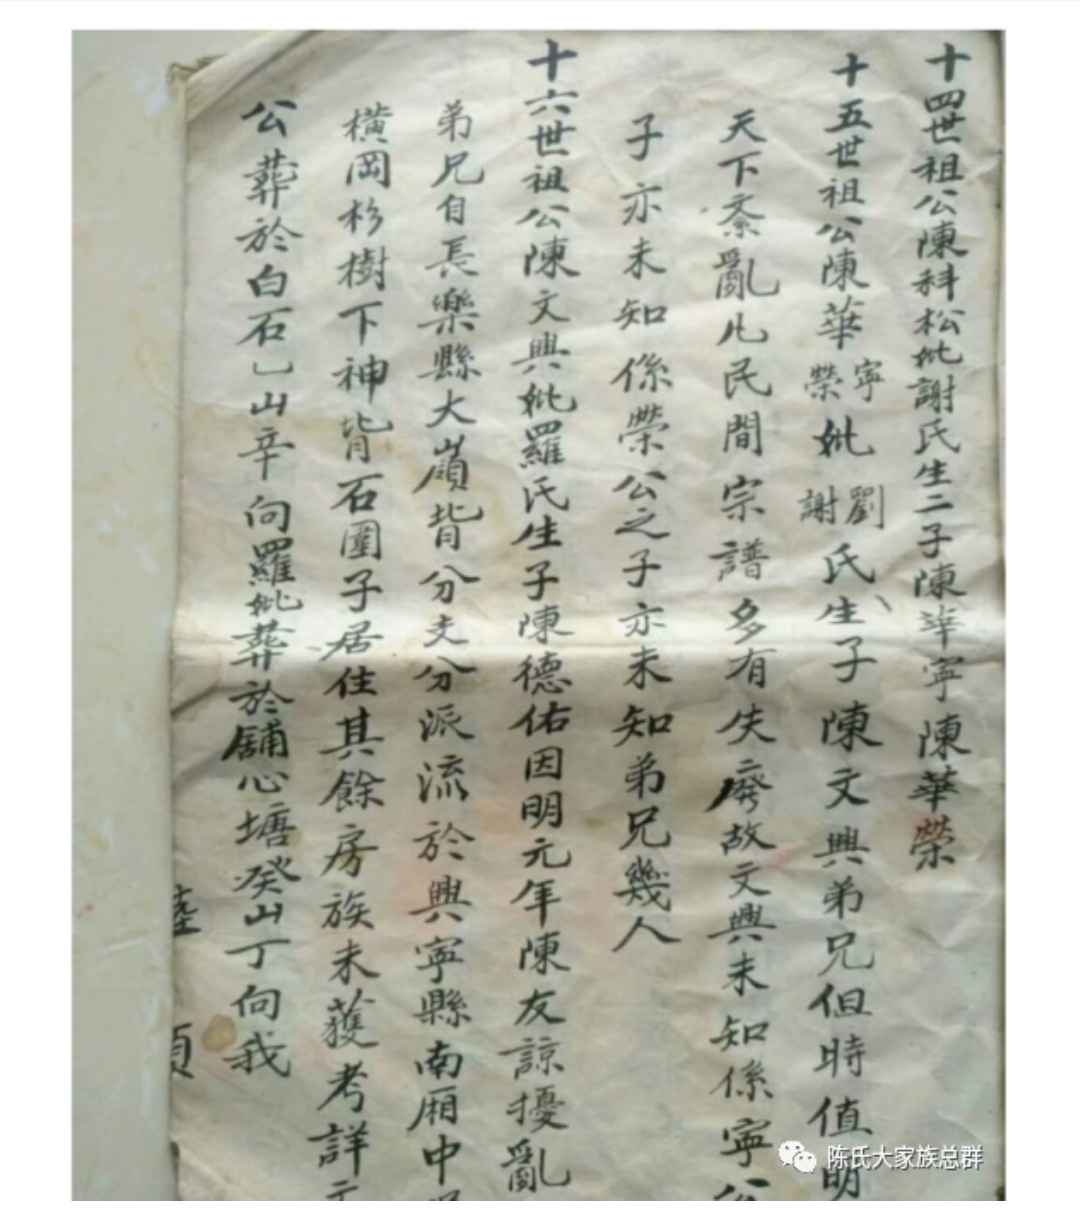 十四世祖公陳科松妣謝氏生二子陳華寧陳華榮
十五世祖公陳華寧榮妣劉謝氏生子陳文興弟兄但時值明
天下紊亂凡民間宗譜多有失廢故文興未知係寧公
子亦未知係榮公之子亦未知弟兄幾人
十六世祖公陳文興妣羅氏生子陳德佑因明元年陳友諒擾亂
弟兄自長樂縣大嶺背分支分派流於興寧縣南廂中
橫岡杉樹下神背石圍子居住其餘房族未獲考詳
公葬於白石乚山辛向羅妣葬於鋪心塘癸山丁向我
陈氏大家族总群